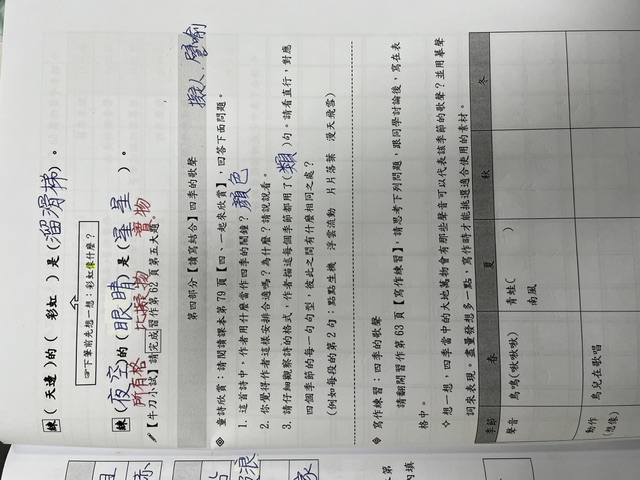 練(天邊)的(彩虹)是(溜滑梯)。
☞下筆前先想一想:彩虹像什麼?
練(夜空)的(眼睛)是(星星)。
所有格 比擬物 實物
【牛刀小試】請完成習作第62頁第五大題。
第四部分【讀寫結合】四季的歌聲 擬人.譬喻
◈ 童詩欣賞:請閱讀課本第79頁【四、一起來欣賞】,回答下面問題。
1. 這首詩中,作者用什麼當作四季的鬧鐘?顏色
2. 你覺得作者這樣安排合適嗎?為什麼?請說說看。
3. 請仔細觀察詩的格式,作者描述每個季節都用了(類)句。請看直行,對應
四個季節的每一句句型,彼此之間有什麼相同之處?
(例如每段的第2句:點點生機 浮雲流動 片片落葉 漫天飛雪)
◈ 寫作練習:四季的歌聲
請翻開習作第63頁【寫作練習】,請思考下列問題,跟同學討論後,寫在表
格中。
✧ 想一想,四季當中的大地萬物會有那些聲音可以代表該季節的歌聲?並用摹聲
詞來表現。盡量發想多一點,寫作時才能挑選適合使用的素材。
季節 春 夏 秋 冬
聲音 鳥鳴(啾啾啾) 青蛙( )
南風
動作 鳥兒在歌唱
(想像)